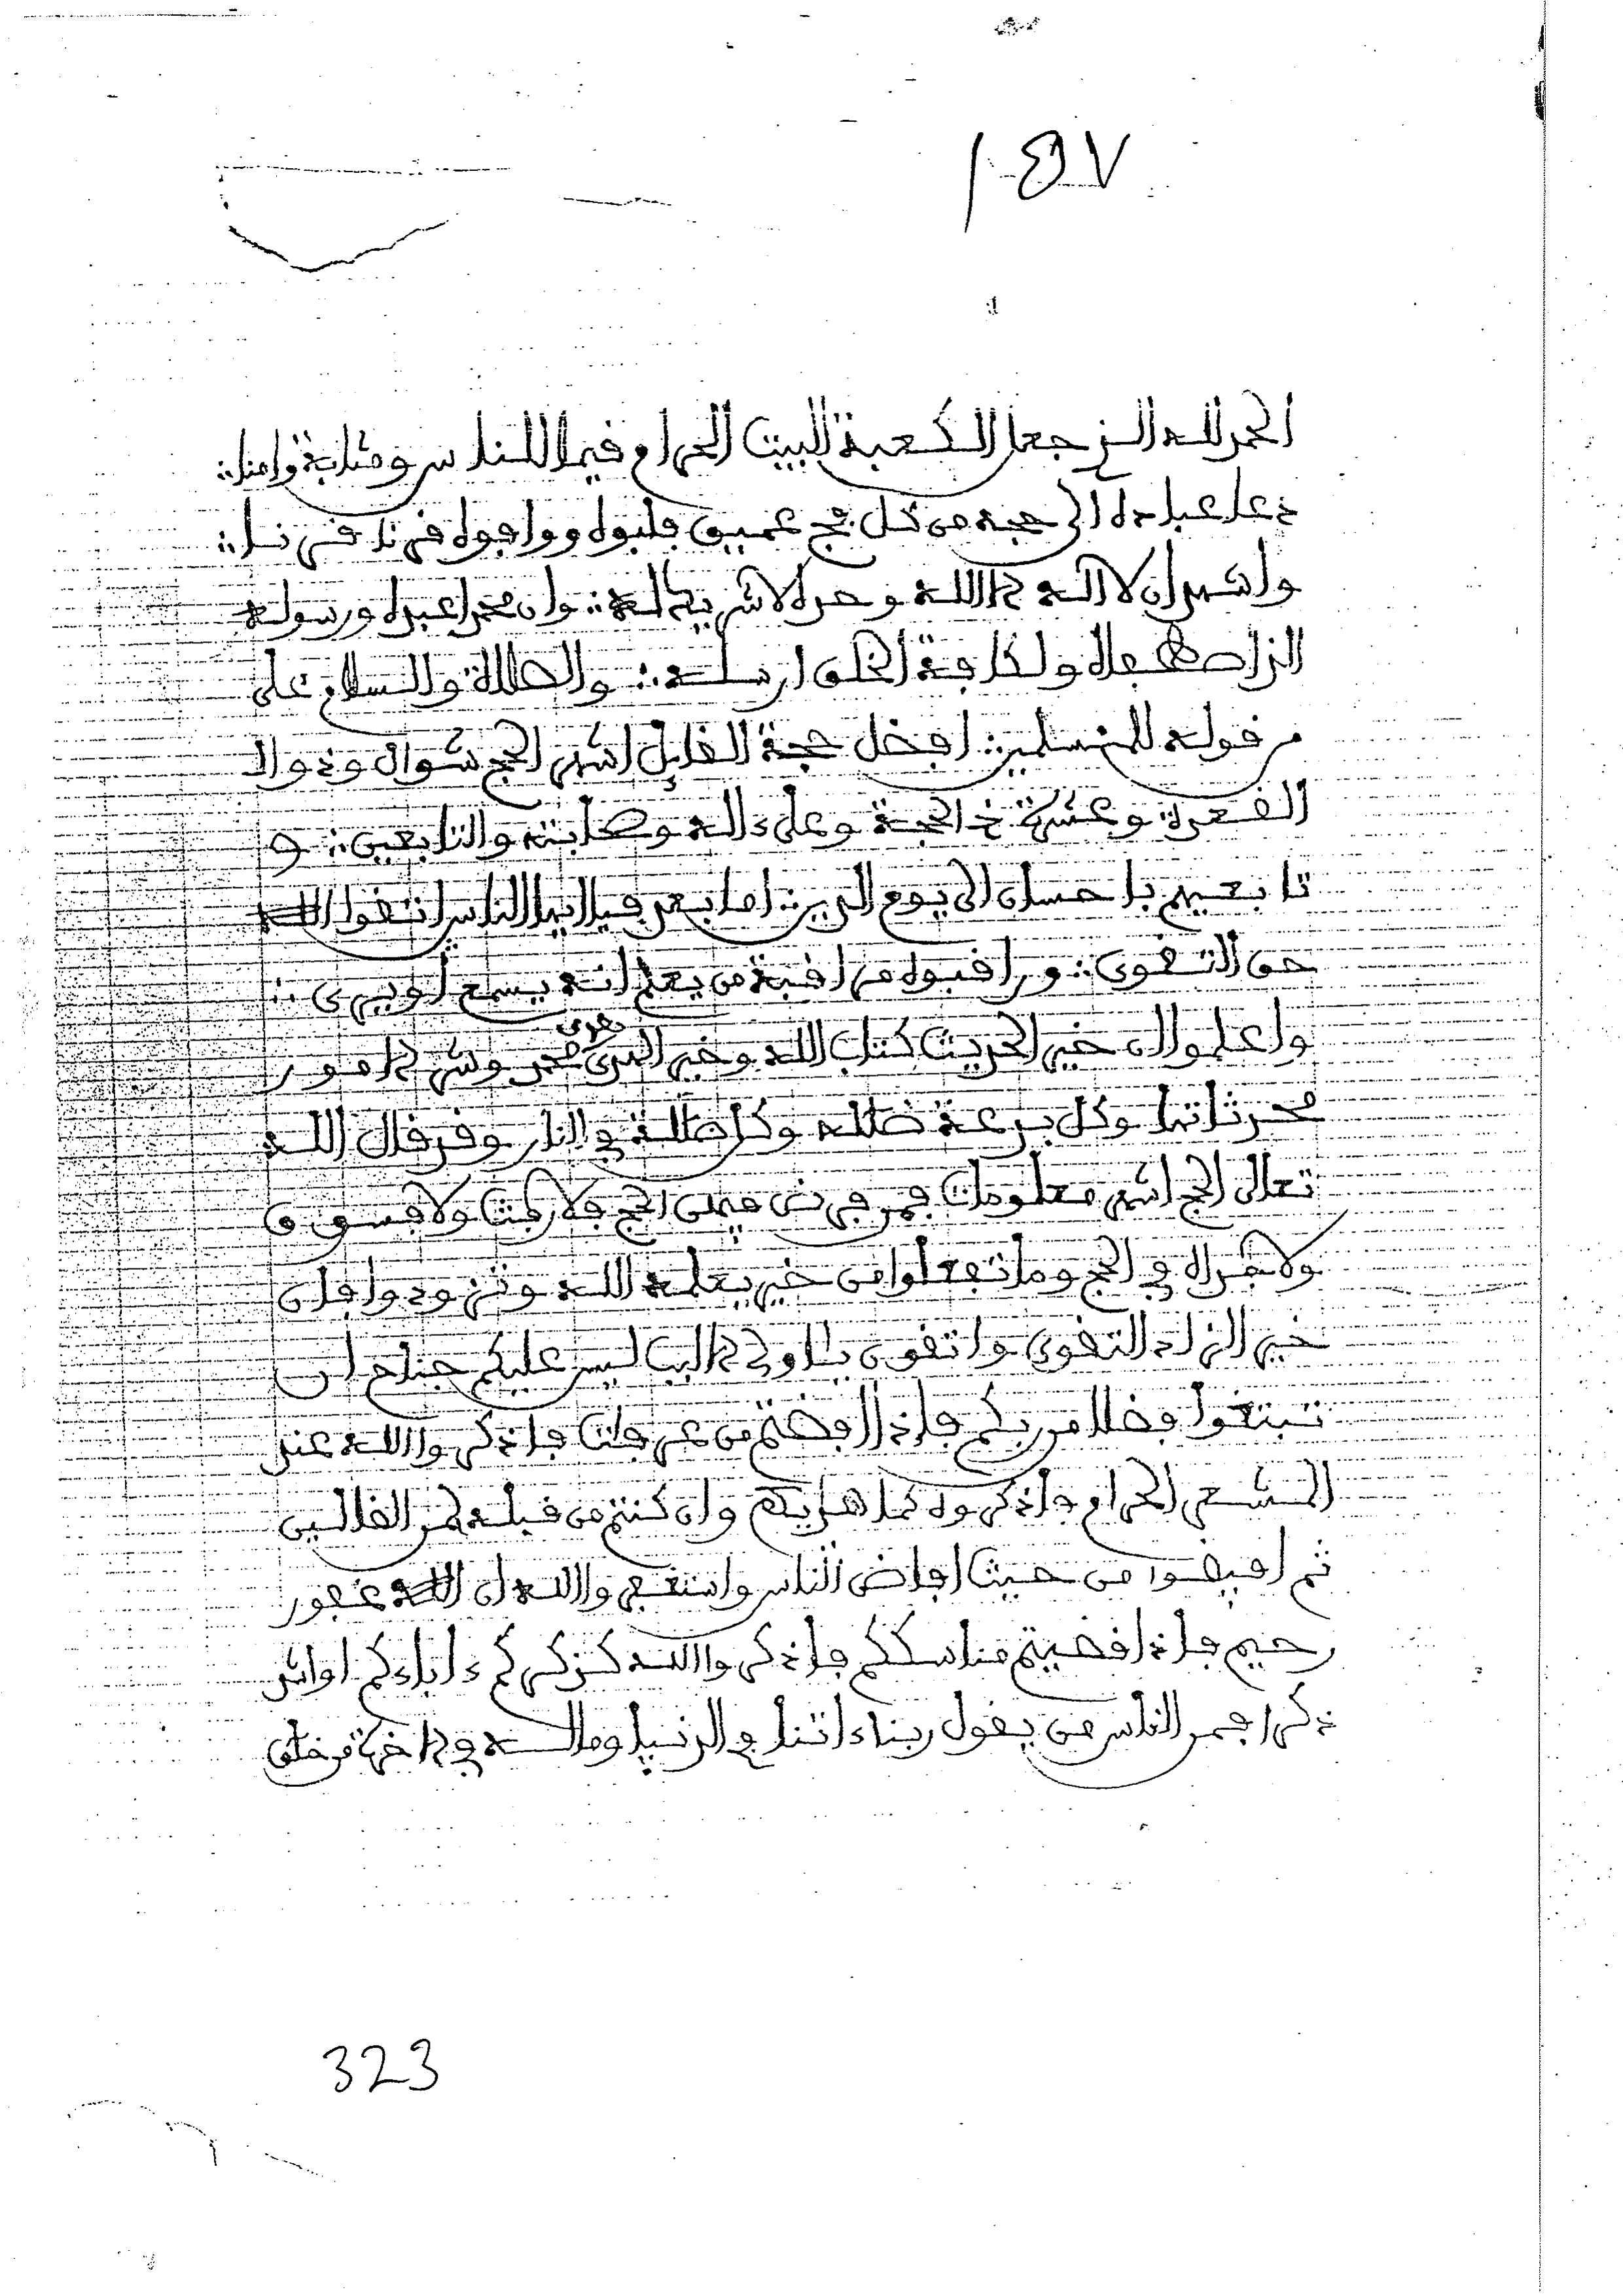 ١٤٥٧
الحمد لله الذي جعل الكعبة البيت الحرام قيما للناس ومثابة وامنا
دعا عباده الى حجه من كل فج عميق فلبوه ووافوه
واشهد ان لا اله الا الله وحده لا شريك له وان محمدا عبده ورسوله
الذي اصطفاه ولكافة الخلق ارسله والصلاة والسلام على
من قوله للمسلمين افضل حجة القايل اشهر الحج شوال وذوا
القعدة وعشرة ذي الحجة وعلى ءاله وصحابته والتابعين و
تابعيهم باحسان الى يوم الدين اما بعد فيا ايها الناس اتقوا الله
حق التقوى وراقبوه مراقبة من يعلم انه يسمع او يرى
واعلموا ان خير الحديث كتاب الله وخير الهدى هدى محمد وشر الامور
محدثاتها وكل بدعة ضلله وكل ضللة في النار وقد قال الله
تعالى الحج اشهر معلومات فمن فرض فيهن الحج فلا رفث ولا فسوق
ولا جدال في الحج وما تفعلوا من خير يعلمه الله وتزودوا فان
خير الزاد التقوى واتقون ياولي الالبب ليس عليكم جناح ان
تبتغوا فضلا من ربكم فاذا افضتم من عرفات فاذكروا الله عند
المشعر الحرام واذكروه كما هديكم وان كنتم من قبله لمن الضالين
ثم افيضوا من حيث افاض الناس واستغفروا الله ان الله غفور
رحيم فاذا قضيتم مناسككم فاذكروا الله كذكركم ءاباءكم او اشد
ذكرا فمن الناس من يقول ربنا ءاتنا في الدنيا وماله في الاخرة من خلق
323